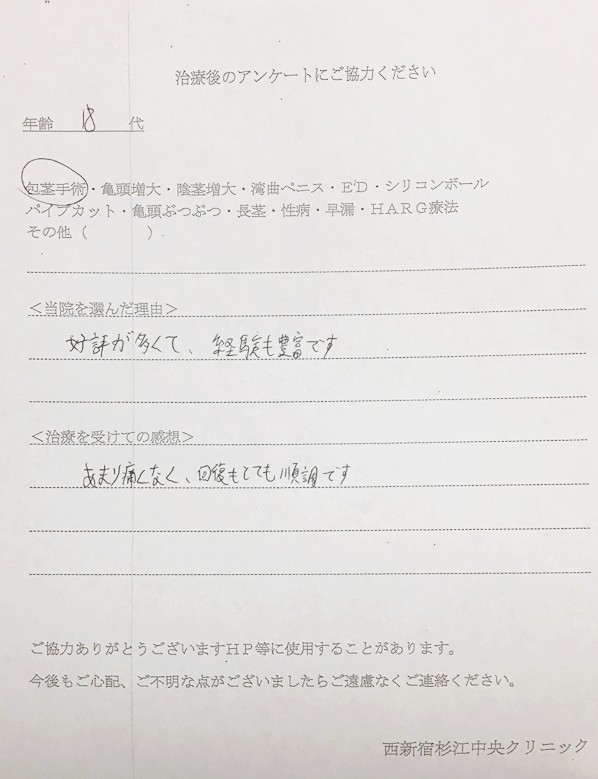 治療後のアンケートにご協力ください
年齢 18 代
包茎手術・亀頭増大・陰茎増大・湾曲ペニス・ED・シリコンボール
パイプカット・亀頭ぶつぶつ・長茎・性病・早漏・HARG療法
その他( )
<当院を選んだ理由>
好評が多くて、経験も豊富です
<治療を受けての感想>
あまり痛くなく、回復もとても順調です
ご協力ありがとうございますHP等に使用することがあります。
今後もご心配、ご不明な点がございましたらご遠慮なくご連絡ください。
西新宿杉江中央クリニック